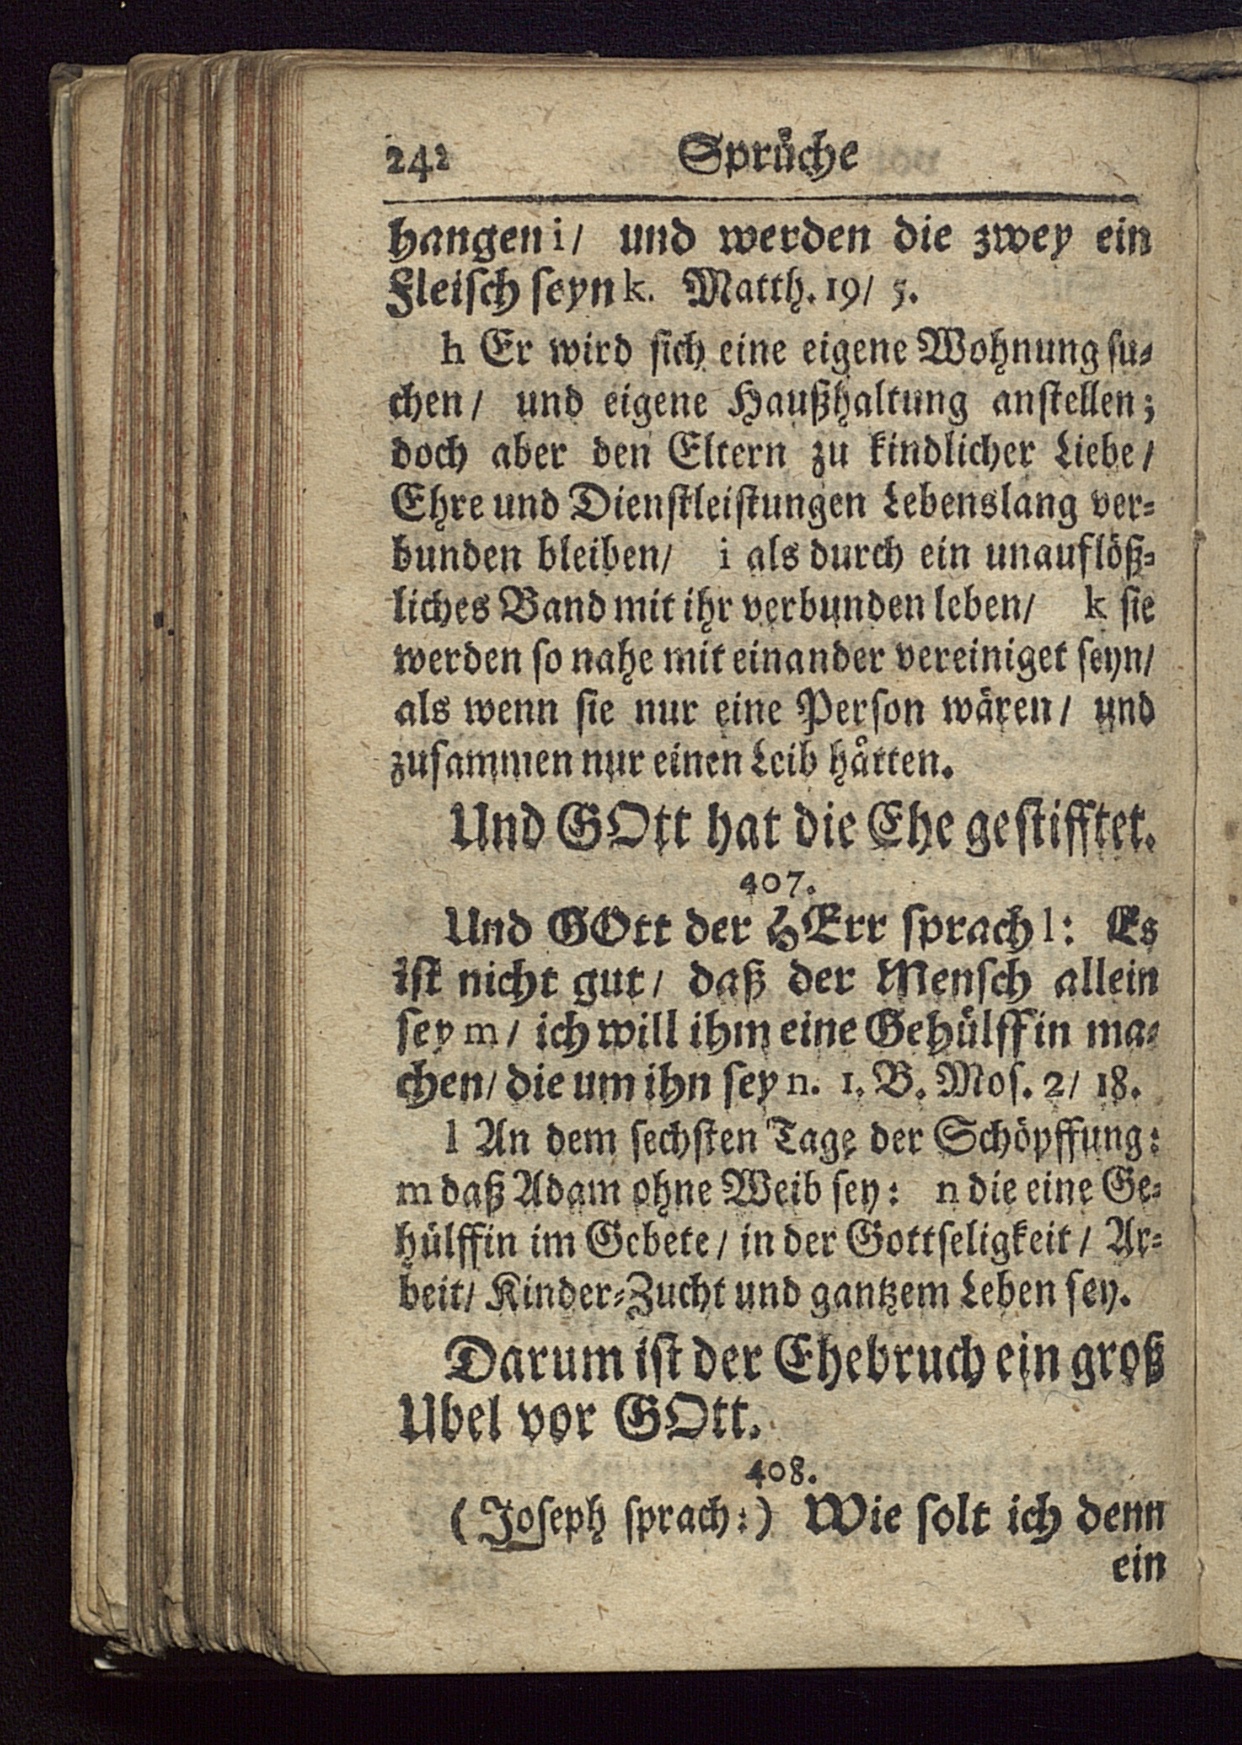 242 Sprüche
hangen i/ und werden die zwey ein
Fleisch seyn k. Matth. 19/ 5.
h Er wird sich eine eigene Wohnung su-
chen/ und eigene Haußhaltung anstellen;
doch aber den Eltern zu kindlicher Liebe/
Ehre und Dienstleistungen Lebenslang ver-
bunden bleiben/ i als durch ein unauflöß-
liches Band mit ihr verbunden leben/ k sie
werden so nahe mit einander vereiniget seyn/
als wenn sie nur eine Person wären/ und
zusammen nur einen Leib hätten.
Und GOtt hat die Ehe gestifftet.
407.
Und GOtt der HErr sprach l: Es
ist nicht gut/ daß der Mensch allein
sey m/ ich will ihm eine Gehülffin ma-
chen/ die um ihn sey n. 1. B. Mos. 2/ 18.
l An dem sechsten Tage der Schöpffung:
m daß Adam ohne Weib sey: n die eine Ge-
hülffin im Gebete/ in der Gottseligkeit/ Ar-
beit/ Kinder-Zucht und gantzem Leben sey.
Darum ist der Ehebruch ein groß
Ubel vor GOtt.
408.
(Joseph sprach:) Wie solt ich denn
ein